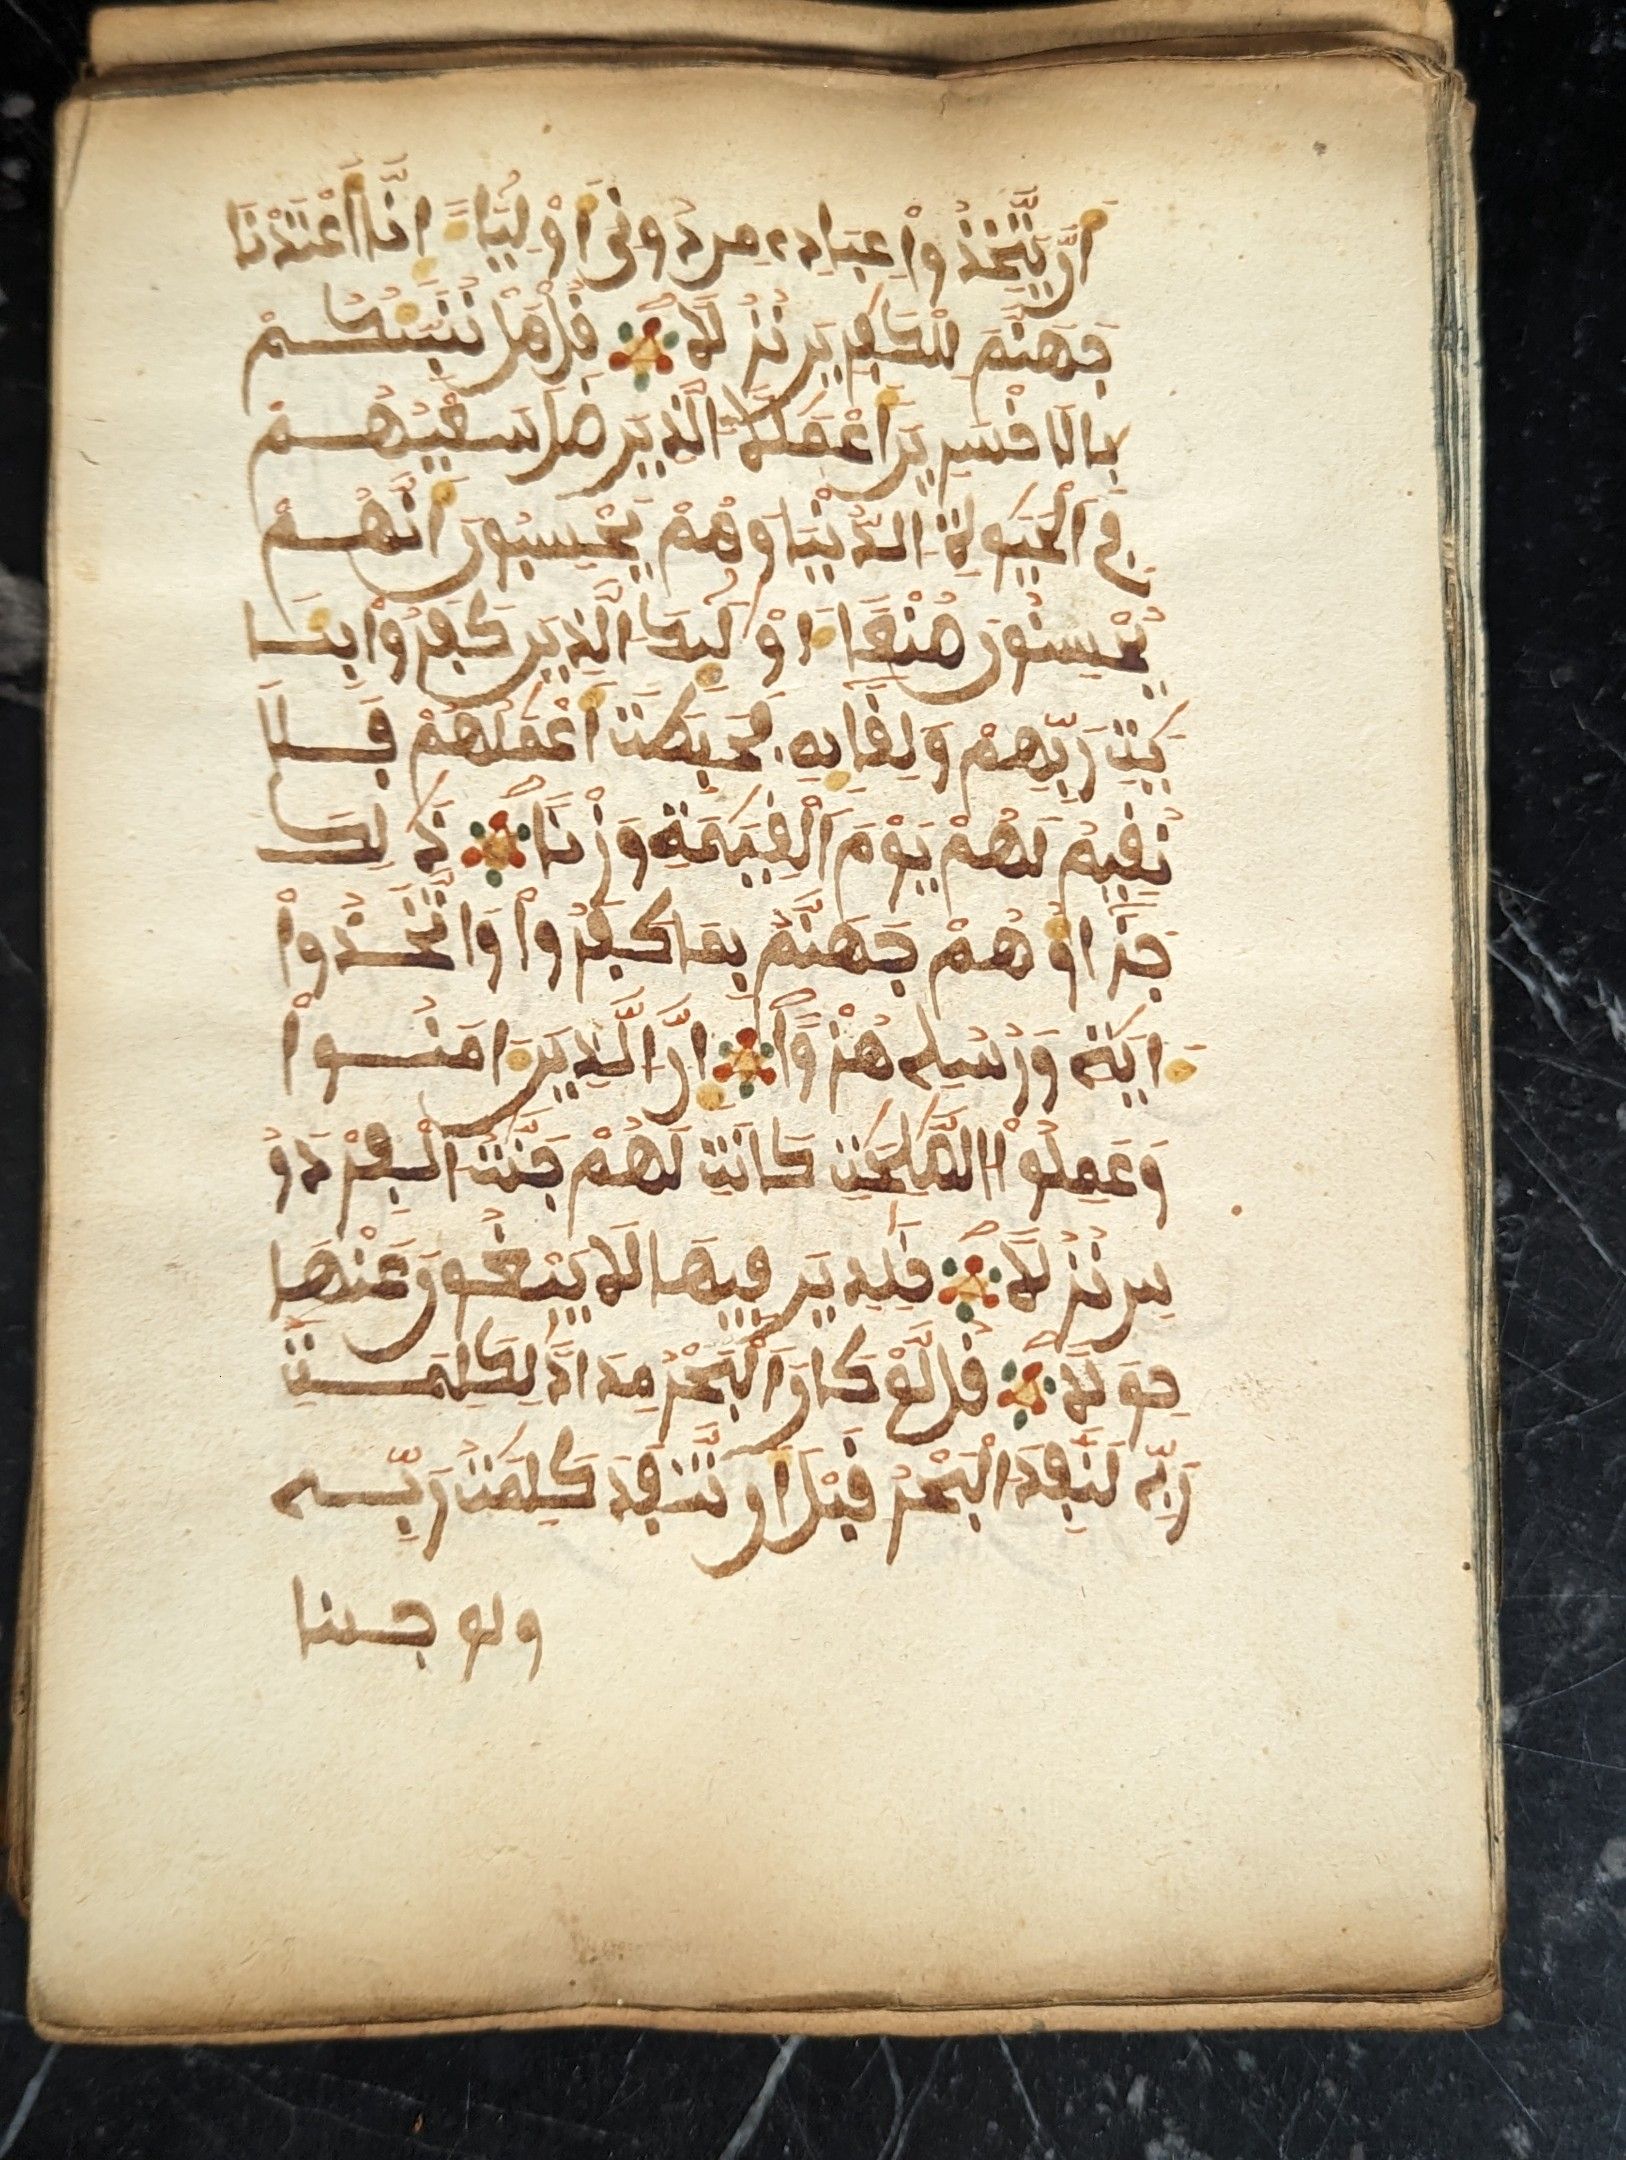 أَنْ يَّتَّخِذُواْ عِبَادِے مِن دُونِيَ أَوْلِيَآءَ اِنَّا أَعْتَدْنَا
جَهَنَّمَ لِلْكٰفِرِينَ نُزُلاً قُلْ هَلْ نُنَبِّئُكُمْ
بِالَاخْسَرِينَ أَعْمَٰلاً اَ۬لذِينَ ضَلَّ سَعْيُهُمْ
فِے اِ۬لْحَيَوٰةِ اِ۬لدُّنْيَا وَهُمْ يَحْسِبُونَ أَنَّهُمْ
يُحْسِنُونَ صُنْعاً اُوْلَٰئِكَ اَ۬لذِينَ كَفَرُواْ بِـَٔا
يَٰتِ رَبِّهِمْ وَلِقَآئِهِۦ فَحَبِطَتَ اَعْمَٰلُهُمْ فَلَا
نُقِيمُ لَهُمْ يَوْمَ اَ۬لْقِيَٰمَةِ وَزْناً ذَٰلِكَ
جَزَآؤُهُمْ جَهَنَّمُ بِمَا كَفَرُواْ وَاتَّخَذُوٓاْ
ءَايَٰتِے وَرُسُلِے هُزُؤاً اِنَّ اَ۬لذِينَ ءَامَنُواْ
وَعَمِلُواْ اُ۬لصَّٰلِحَٰتِ كَانَتْ لَهُمْ جَنَّٰتُ اُ۬لْفِرْدَوْ
سِ نُزُلاً خَٰلِدِينَ فِيهَا لَا يَبْغُونَ عَنْهَا
حِوَلاً قُل لَّوْ كَانَ اَ۬لْبَحْرُ مِدَاداً لِّكَلِمَٰتِ
رَبِّے لَنَفِدَ اَ۬لْبَحْرُ قَبْلَ أَن تَنفَدَ كَلِمَٰتُ رَبِّے
ولو جئنا